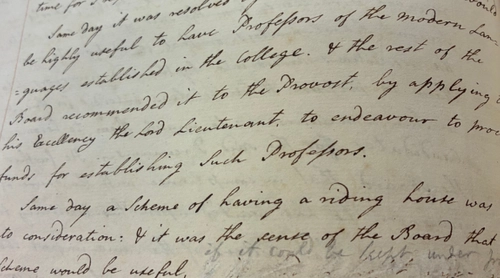 time for
Same day it was resolved would
be highly useful to have Professors of the modern Lan-
=guages established in the College. & the rest of the
Board recommended it to the Provost, by applying
his Excellency the Lord Lieutenant, to endeavour to pro
funds for establishing such Professors.
Same day a Scheme of having a riding house was
to consideration: & it was the sense of the Board that
Scheme would be useful, if it could be kept under